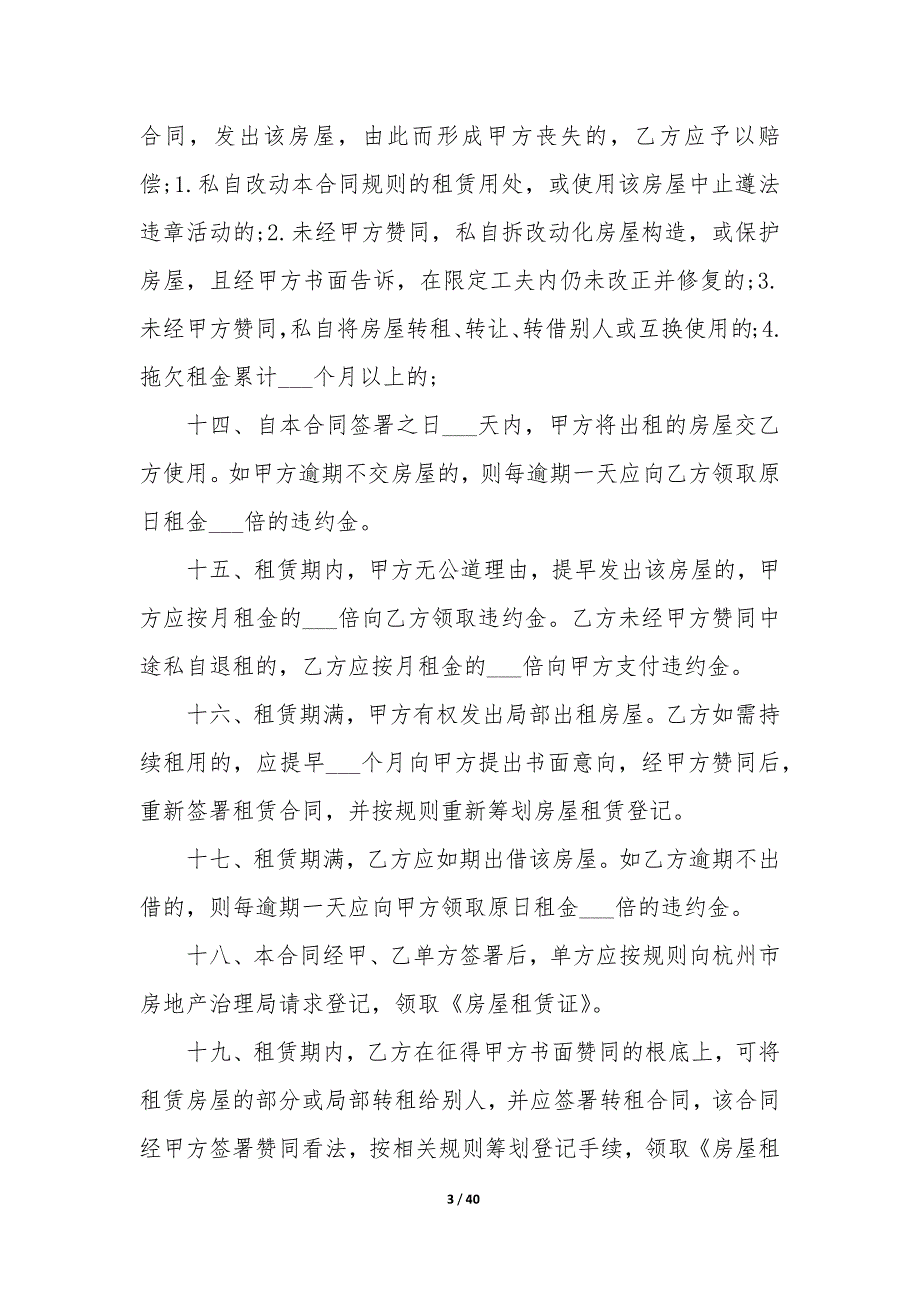 合同，发出该房屋，由此而形成甲方丧失的，乙方应予以赔
偿;1.私自改动本合同规则的租赁用处，或使用该房屋中止遵法
违章活动的;2.未经甲方赞同，私自拆改动化房屋构造，或保护
房屋，且经甲方书面告诉，在限定工夫内仍未改正并修复的;3.
未经甲方赞同，私自将房屋转租、转让、转借别人或互换使用的;4.
拖欠租金累计___个月以上的;
十四、自本合同签署之日___天内，甲方将出租的房屋交乙
方使用。如甲方逾期不交房屋的，则每逾期一天应向乙方领取原
日租金___倍的违约金。
十五、租赁期内，甲方无公道理由，提早发出该房屋的，甲
方应按月租金的___倍向乙方领取违约金。乙方未经甲方赞同中
途私自退租的，乙方应按月租金的___倍向甲方支付违约金。
十六、租赁期满，甲方有权发出局部出租房屋。乙方如需持
续租用的，应提早___个月向甲方提出书面意向，经甲方赞同后，
重新签署租赁合同，并按规则重新筹划房屋租赁登记。
十七、租赁期满，乙方应如期出借该房屋。如乙方逾期不出
借的，则每逾期一天应向甲方领取原日租金___倍的违约金。
十八、本合同经甲、乙单方签署后，单方应按规则向杭州市
房地产治理局请求登记，领取《房屋租赁证》。
十九、租赁期内，乙方在征得甲方书面赞同的根底上，可将
租赁房屋的部分或局部转租给别人，并应签署转租合同，该合同
经甲方签署赞同看法，按相关规则筹划登记手续，领取《房屋租
3 / 40